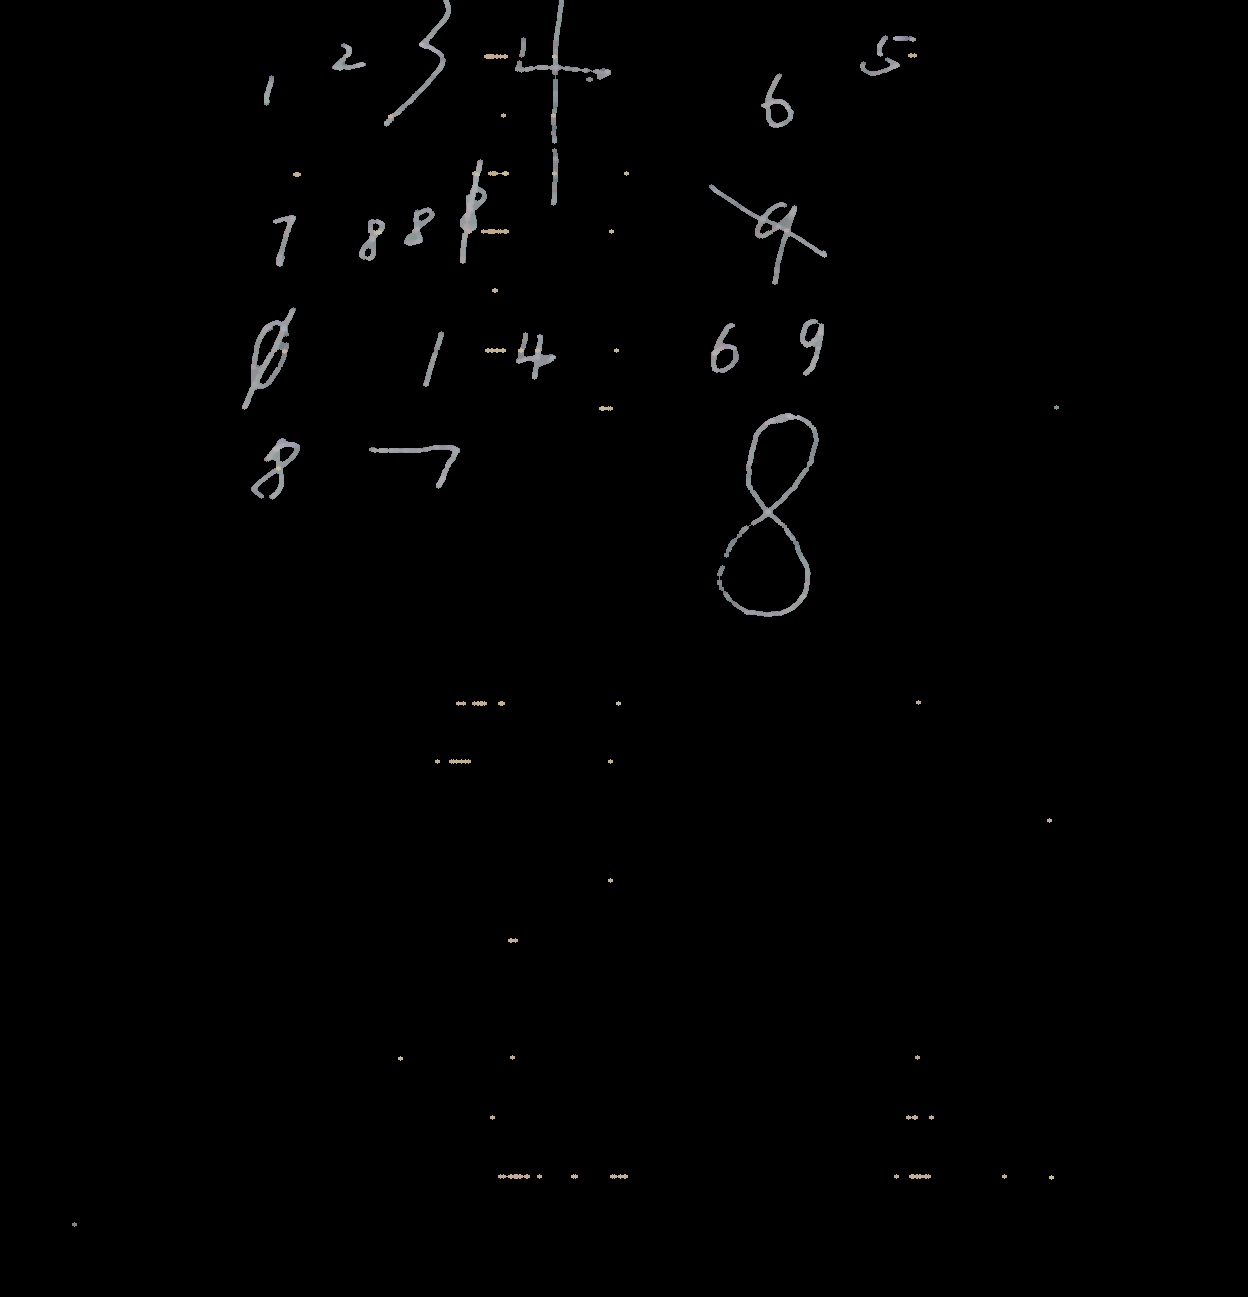 1 2 3 4 6 5
7 8 8 8 9
0 1 4 6 9
8 7 8